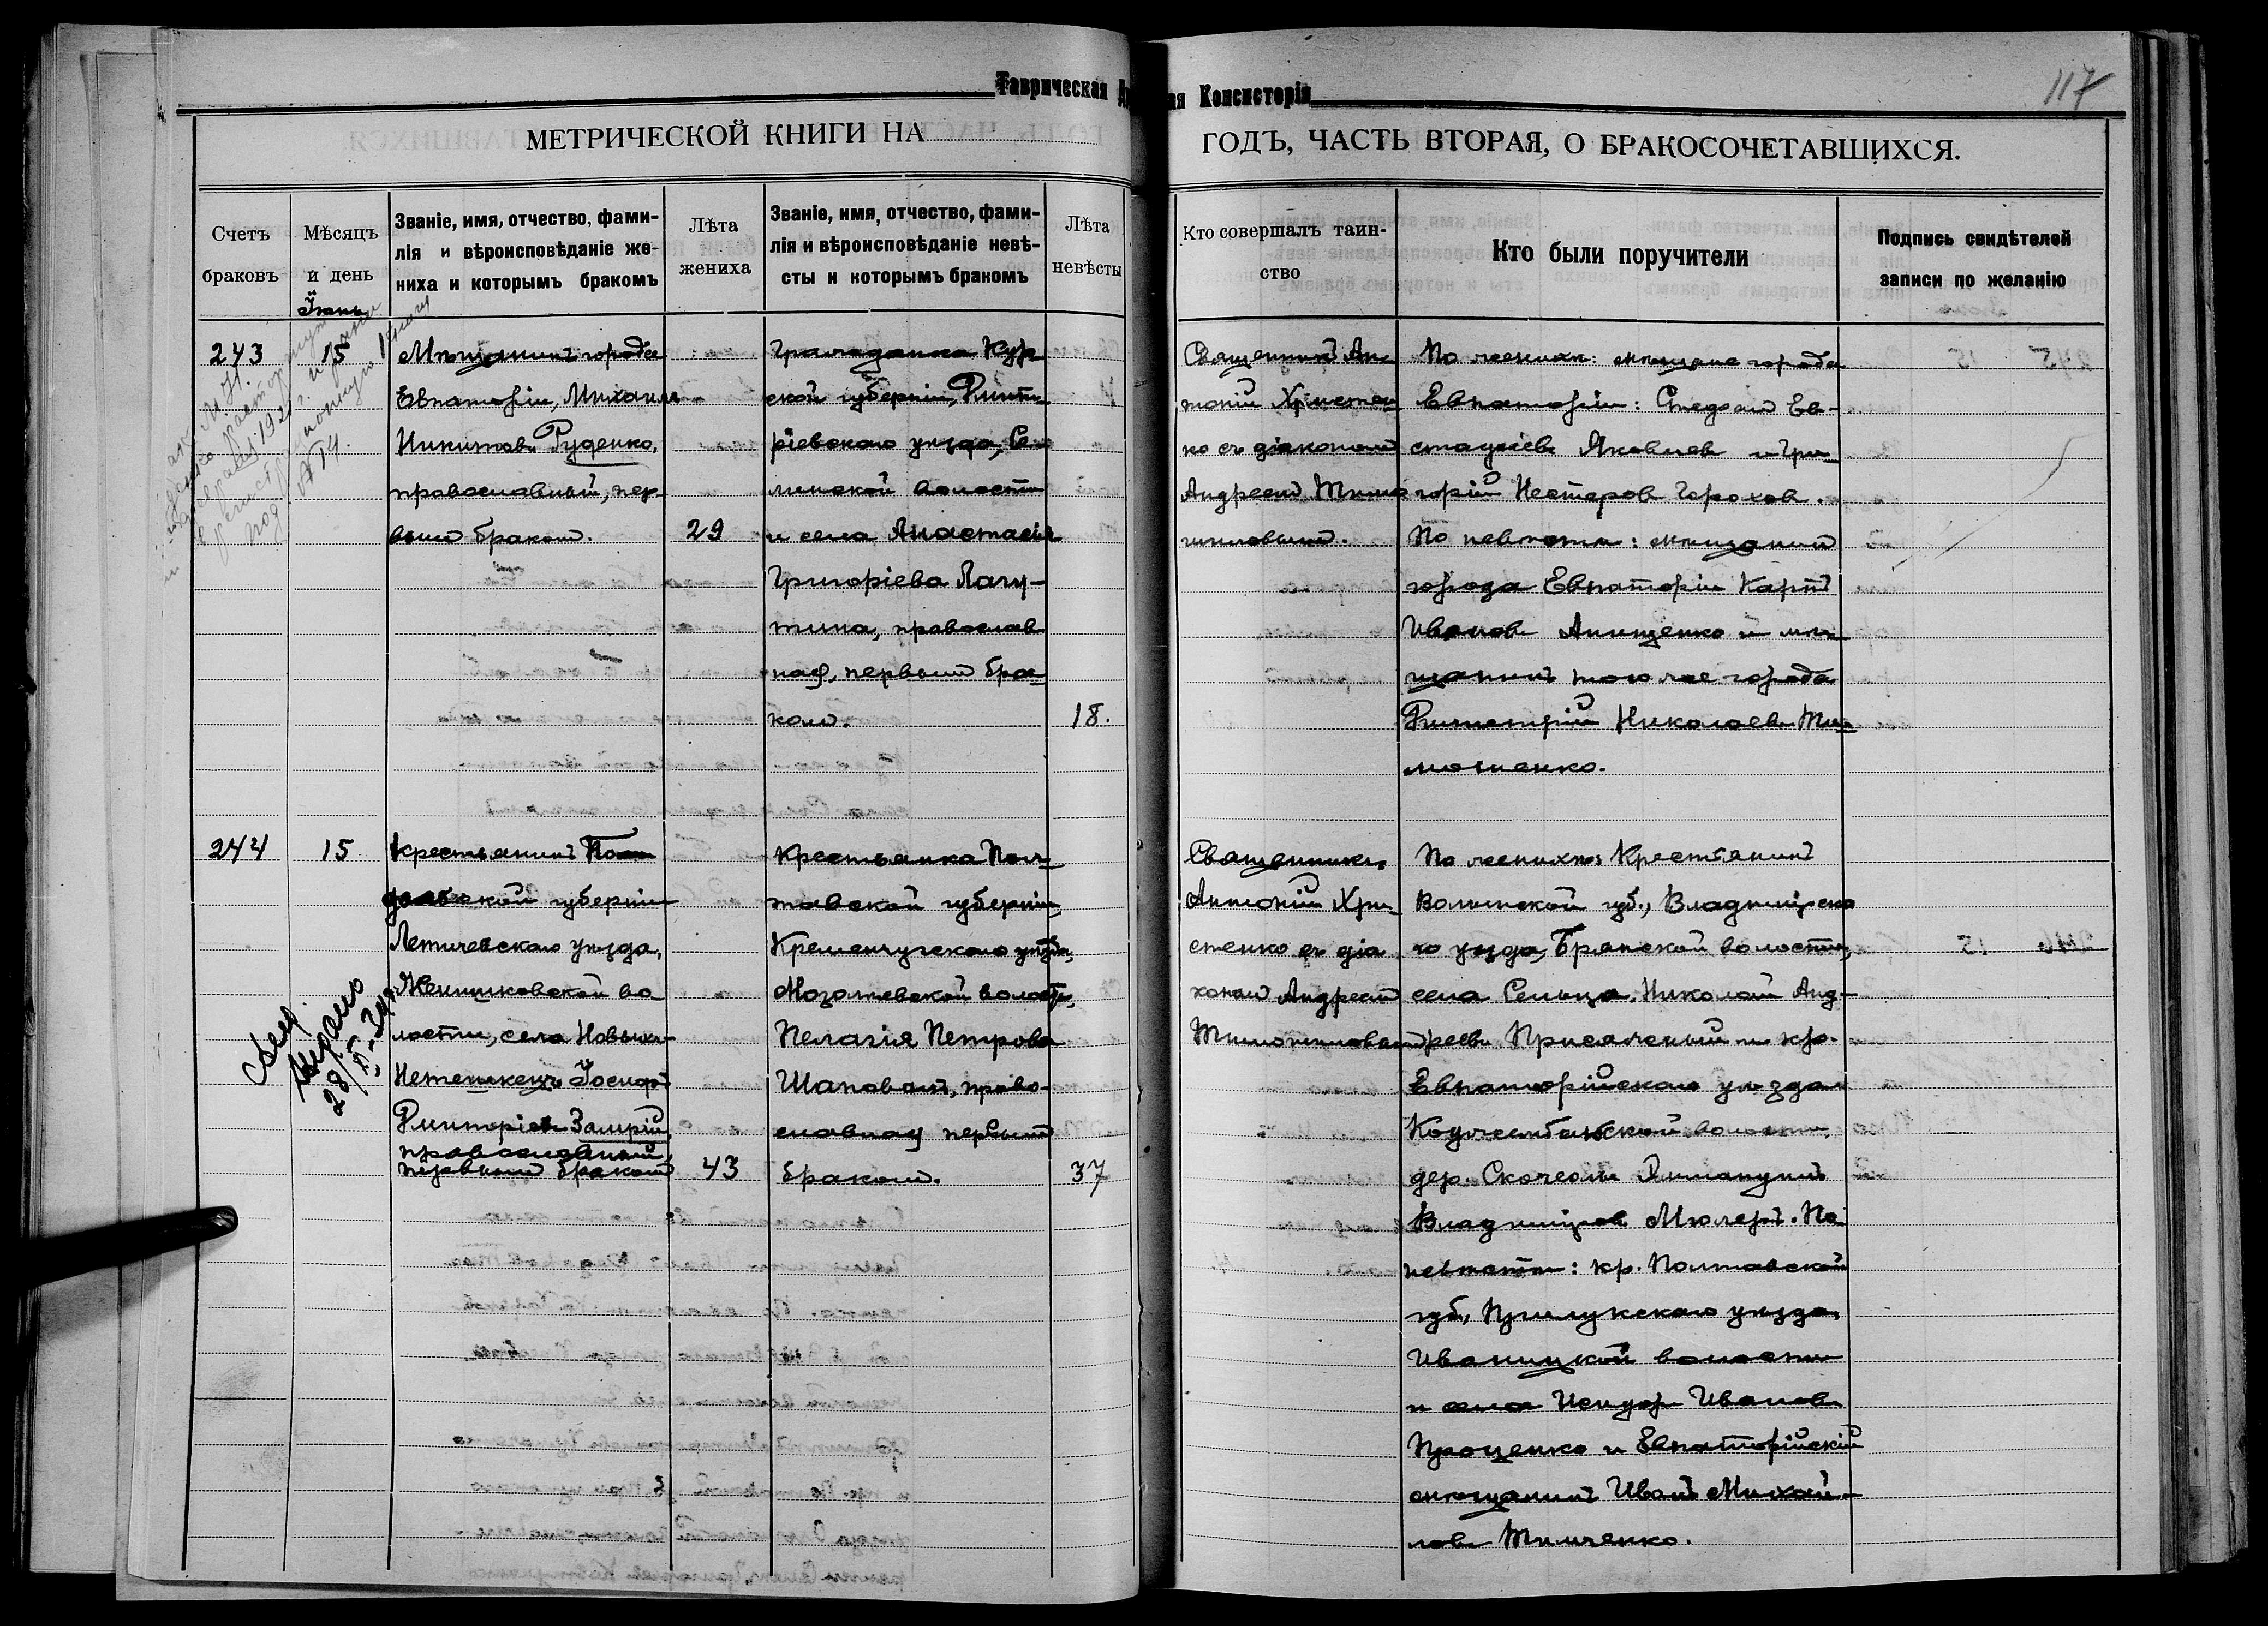 117
Таврическая
ая Консисторія
МЕТРИЧЕСКОЙ КНИГИ НА
ГОДЪ, ЧАСТЬ ВТОРАЯ, О БРАКОСОЧЕТАВШИХСЯ.
Счетъ браковъ
Мѣсяцъ и день
Званіе, имя, отчество, фами-
лія и вѣроисповѣданіе же-
ниха и которымъ бракомъ
Лѣта жениха
Званіе, имя, отчество, фами-
лія и вѣроисповѣданіе невѣ-
сты и которымъ бракомъ
Лѣта невѣсты
Кто совершалъ таин-
ство
Кто были поручители
Подпись свидѣтелей
записи по желанію
Іюнь
243
15
Мѣщанинъ города
Евпаторіи, Михаилъ
Никитовъ Руденко,
православный, пер-
вымъ бракомъ.
29
Гражданка Кур
ской губерніи, Дмит-
ріевскаго уѣзда, Се-
линской волости
и села Анастасія
Григоріева Лагу-
тина, православ
ная, первымъ бра-
комъ.
18.
Священникъ Ан-
тоній Христен
ко съ діакономъ
Андреемъ Тимо
шиловымъ.
По женихѣ: мѣщане города
Евпаторіи: Спедоръ Ев-
стафіевъ Яковлевъ и Гри-
горій Нестеровъ Гороховъ.
По невѣстѣ: мѣщанинъ
города Евпаторіи Карпъ
Ивановъ Анищенко и мѣ-
щанинъ того же города
Димитрій Николаевъ Ти-
мошенко.
244
15
Крестьянинъ По
дольской губерніи
Летичевскаго уѣзда,
Женишковской во
лости, села Новыхъ-
Іосифъ
Дмитріевъ
православный,
первымъ бракомъ
43
Крестьянка Пол-
тавской губерніи,
Кременчугскаго уѣзда,
волости,
Пелагія Петрова
Шаповалъ, право-
славная первымъ
бракомъ.
37
Священникъ
Антоній Хри-
стенко съ діа
кономъ Андреемъ
Тимошиловымъ
По женихѣ: Крестьянинъ
Волынской губ., Владимірска
го уѣзда, волости,
села Сельца, Николай Анд-
реевъ и кр.
Евпаторійскаго уѣзда
волости,
дер.
Владиміровъ Мюлеръ. По
невѣстѣ: кр. Полтавской
губ., Прилукскаго уѣзда,
Иваницкой волости
и села Исидоръ Ивановъ
Проценко и Евпаторійскій
мѣщанинъ Иванъ Михай-
ловъ Тимченко.